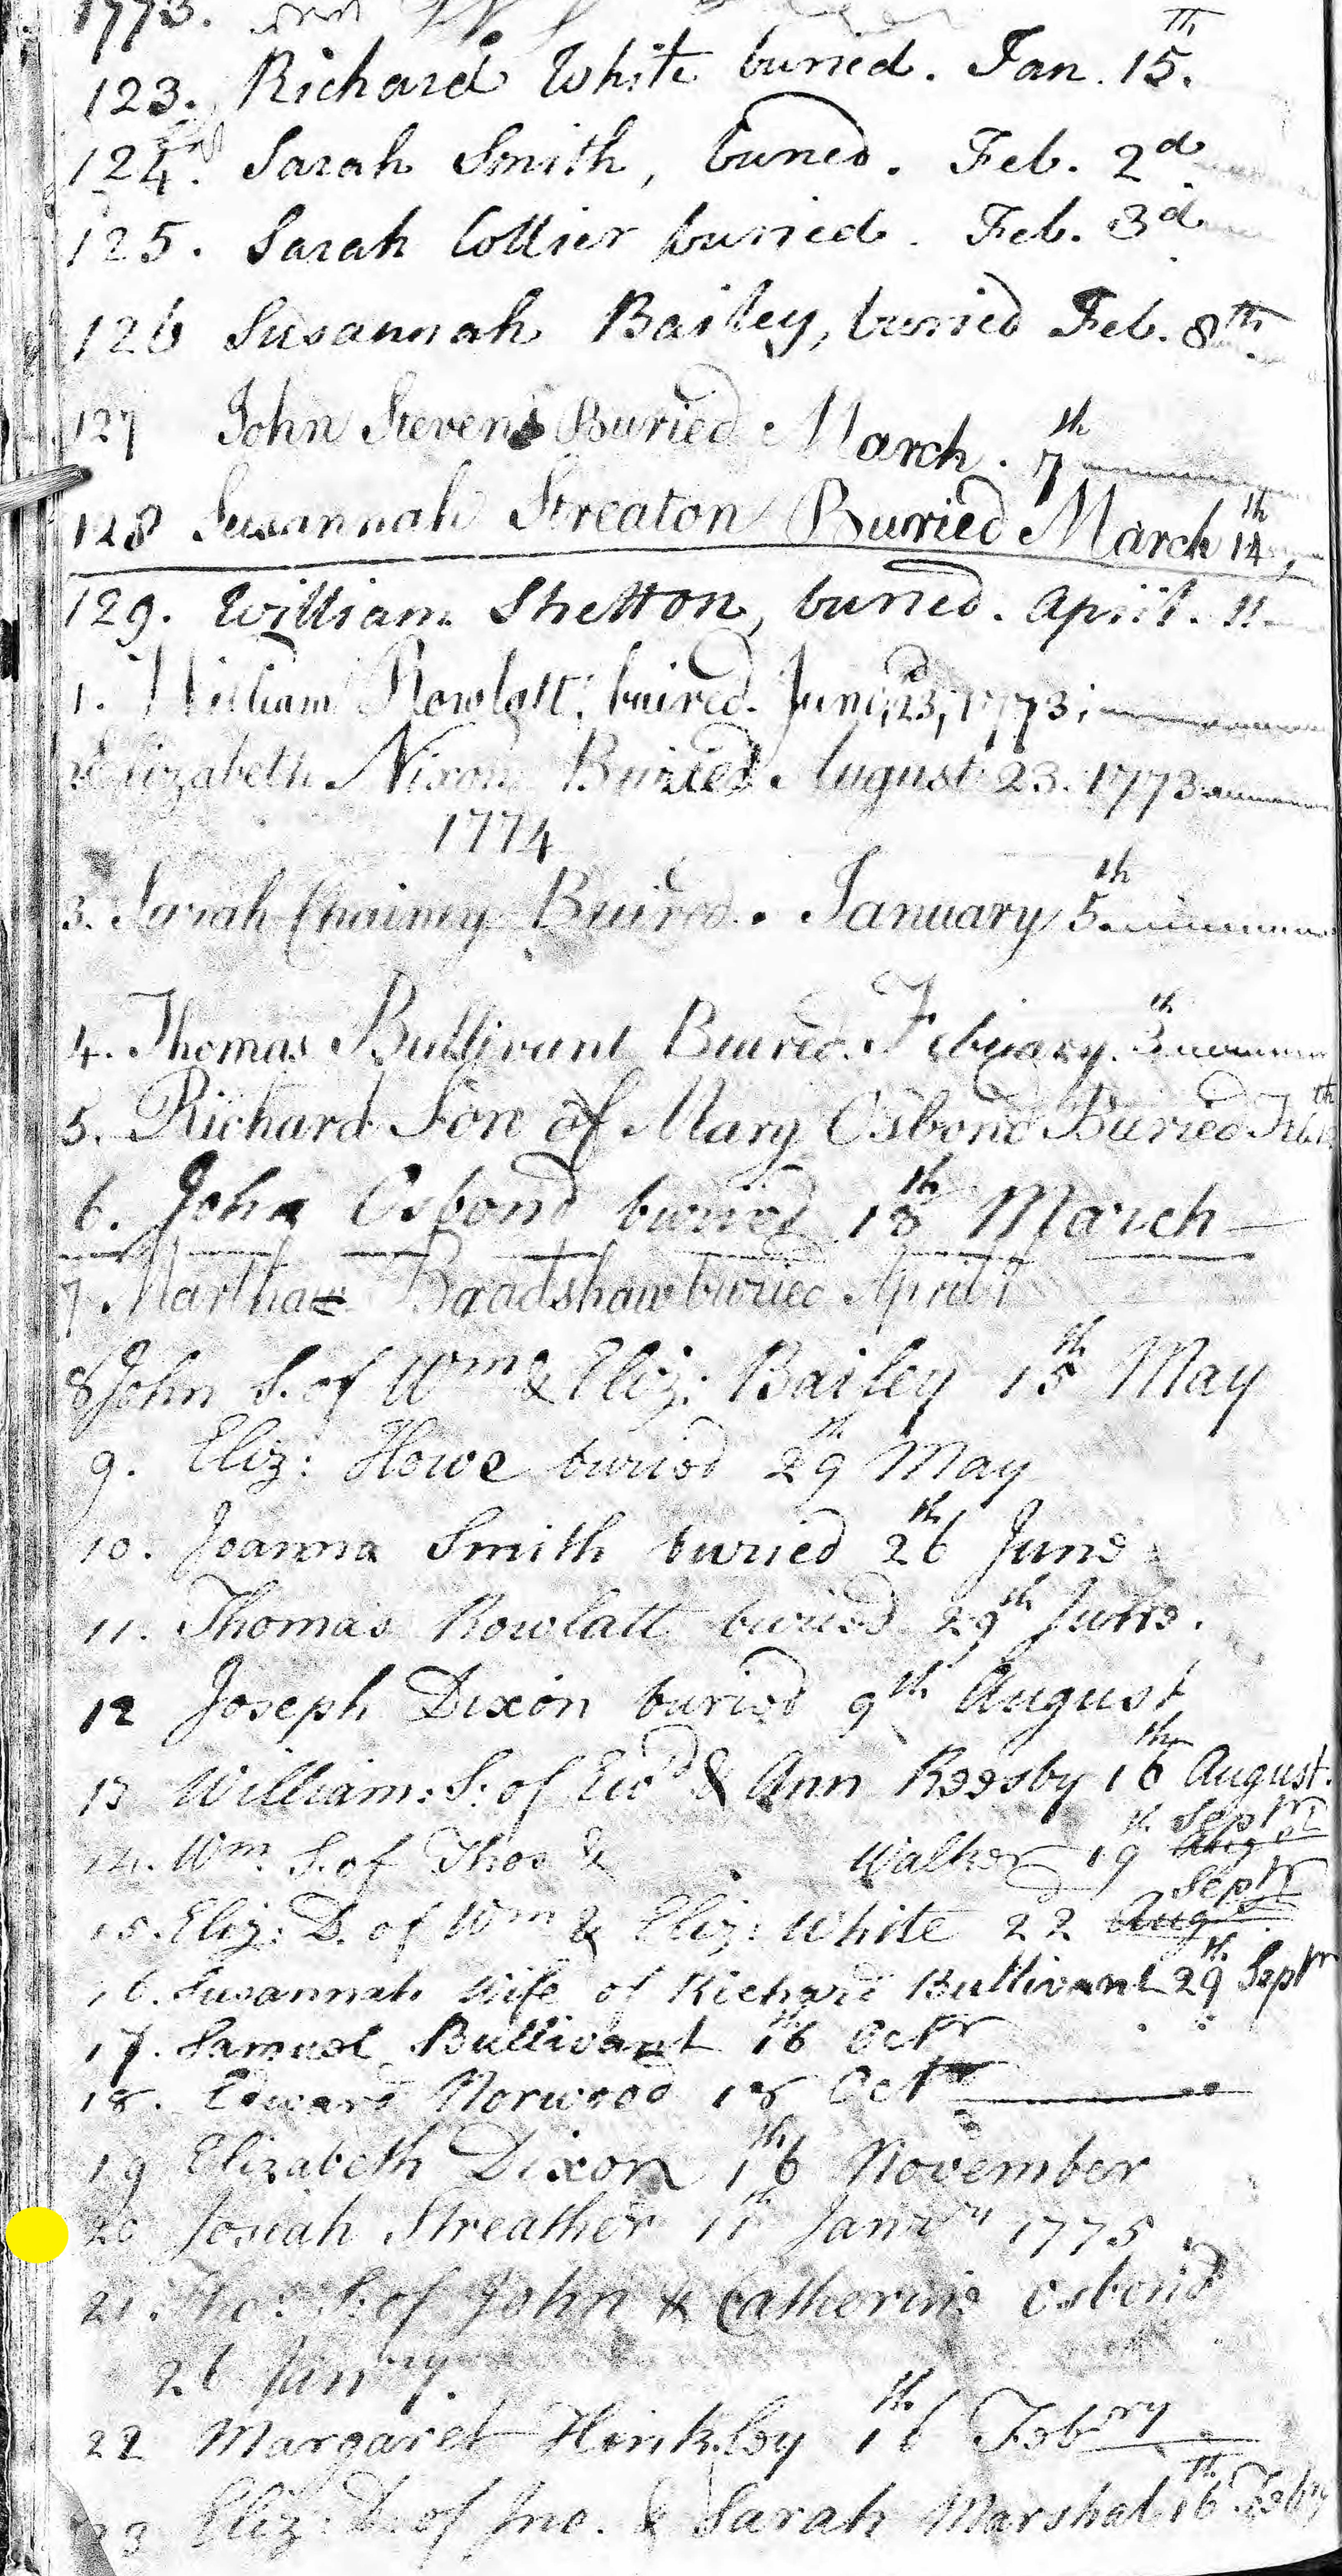 1773.
123. Richard White buried. Jan. 15.th
124. Sarah Smith, buried. Feb. 2d
125. Sarah Collier buried. Feb. 3d
126 Susannah Bailey, buried Feb. 8th
127 John Stevens Buried March. 7th
128 Susannah Streaton Buried March 14th,
129. William Shelton, buried. April. 11
1. William Rowlatt, buired. June, 23, 1773;
Elizabeth Nixon Buried August 23. 1773
1774
3. Sarah Chainey Buired. January 5th
4. Thomas Bullivant Buired. Febuary. 3th
5. Richard Son of Mary Osbond Buried Feb. th
6. John Osbond buried 18th March
7. Martha Bradshaw buried April 1
8 John S. of Wm & Eliz: Bailey 15th May
9. Eliz: Howe buried 29th May
10. Joanna Smith buried 26th June
11. Thomas Rowlatt buried 29th June.
12 Joseph Dixon buried 9th August
13 William: S: of Ewd & Ann Reesby 16th August.
14. Wm. S. of Thos & Walker 19th Aug Septr
15. Eliz: D. of Wm & Eliz: White 22 Aug Septr
16. Susannah Wife of Richard Bullivant 29th Septr
17. Samuel Bullivant 16th Octr
18. Edward Norwood 18 Octr
19 Elizabeth Dixon 16th November
20 Josiah Streather 11th Janry 1775
21. Tho: S: of John & Catherine Osbond
26 Janry.
22 Margaret Hinkley 16th Febry
23 Eliz: D. of Jno. & Sarah Marshal 16th Febry